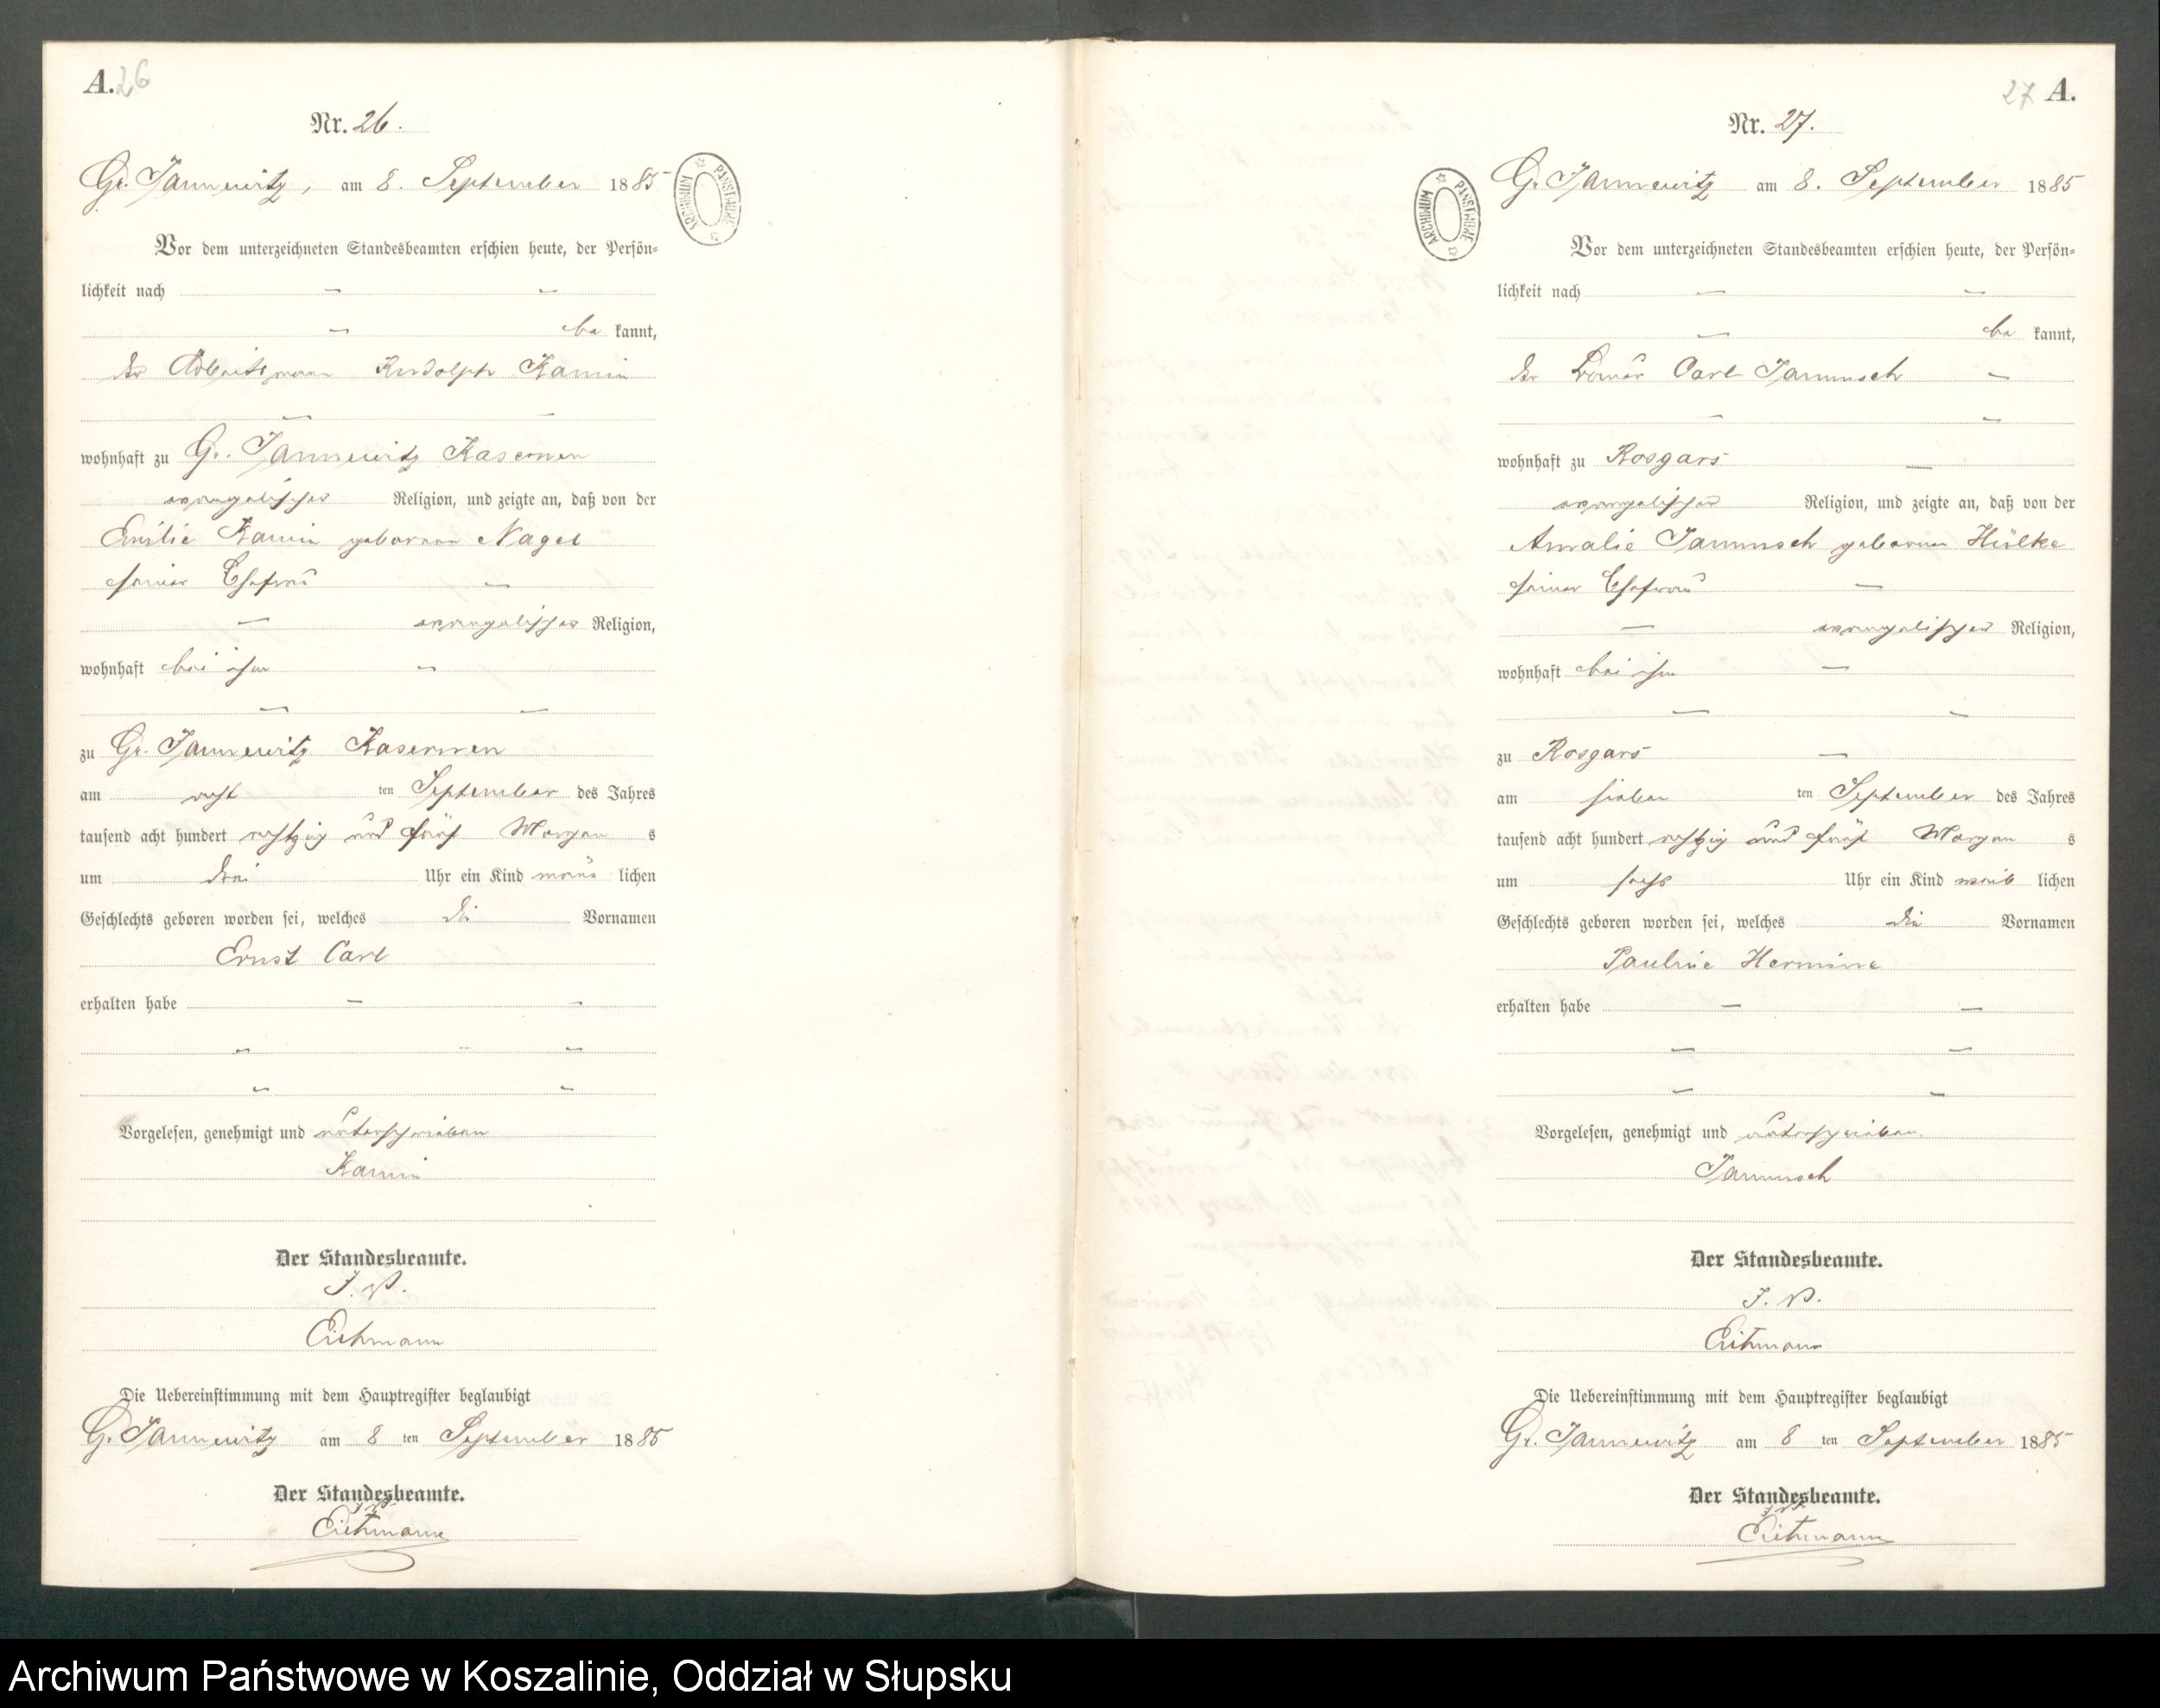 A. 26
Nr. 26.
Gr. Jannewitz, am 8. September 1885
ARCHIWUM PAŃSTWOWE
Vor dem unterzeichneten Standesbeamten erschien heute, der Persön-
lichkeit nach
be kannt,
der Arbeitsmann Rudolph Kamin
wohnhaft zu Gr. Jannewitz Kasernen
evangelischer Religion, und zeigte an, daß von der
Emilie Kamin geborenen Nagel
seiner Ehefrau
evangelischer Religion,
wohnhaft bei ihm
zu Gr. Jannewitz Kasernen
am acht ten September des Jahres
tausend acht hundert achtzig und fünf Morgen s
um drei Uhr ein Kind männ lichen
Geschlechts geboren worden sei, welches die Vornamen
Ernst Carl
erhalten habe
Vorgelesen, genehmigt und unterschrieben
Kamin
Der Standesbeamte.
J. V.
Eichmann
Die Uebereinstimmung mit dem Hauptregister beglaubigt
Gr. Jannewitz am 8 ten September 1885
Der Standesbeamte.
J. V.
Eichmann
27 A.
Nr. 27.
Gr. Jannewitz am 8. September 1885
ARCHIWUM PAŃSTWOWE
Vor dem unterzeichneten Standesbeamten erschien heute, der Persön-
lichkeit nach
be kannt,
der Carl Jannusch
wohnhaft zu Rosgars
evangelischer Religion, und zeigte an, daß von der
Amalie Jannusch geborene Hülke
seiner Ehefrau
evangelischer Religion,
wohnhaft bei ihm
zu Rosgars
am sieben ten September des Jahres
tausend acht hundert achtzig und fünf Morgen s
um sechs Uhr ein Kind weib lichen
Geschlechts geboren worden sei, welches die Vornamen
Pauline Hermine
erhalten habe
Vorgelesen, genehmigt und unterschrieben.
Jannusch
Der Standesbeamte.
J. V.
Eichmann
Die Uebereinstimmung mit dem Hauptregister beglaubigt
Gr. Jannewitz am 8 ten September 1885
Der Standesbeamte.
J. V.
Eichmann
Archiwum Państwowe w Koszalinie, Oddział w Słupsku